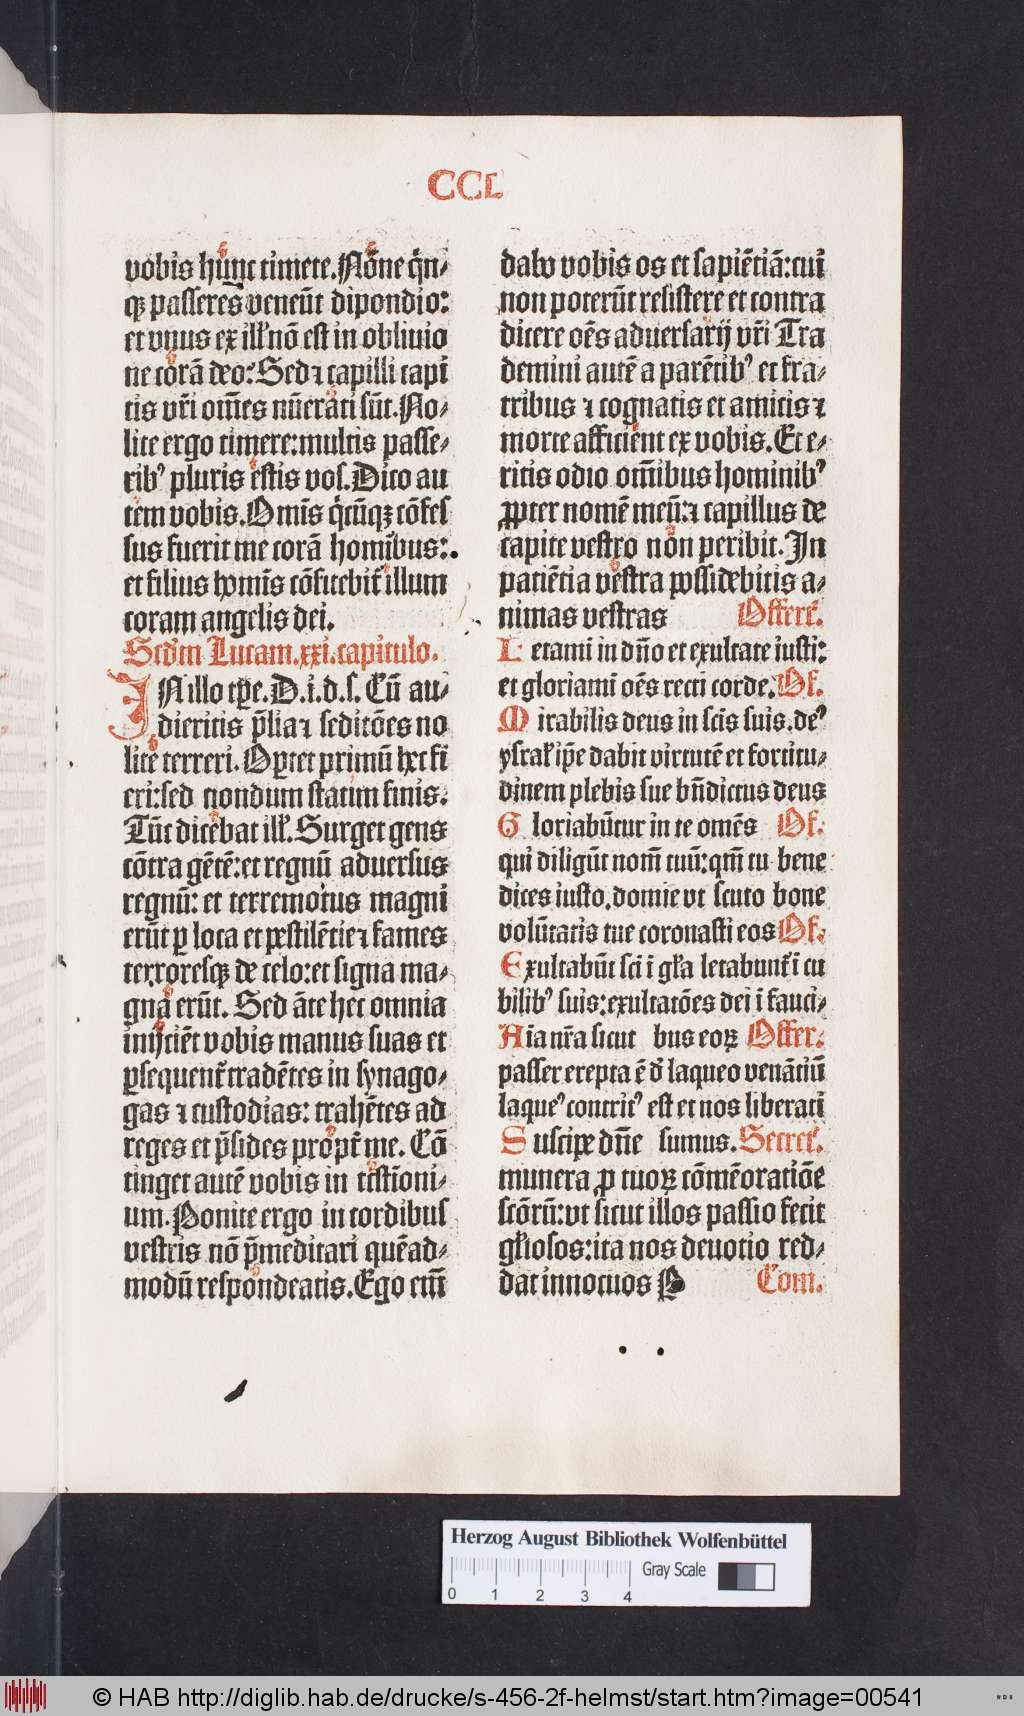 CCL
vobis hūnc timete. Nōne q̄n-
qꝫ passeres veneūt dipondio:
et vnus ex ill' nō est in obliuio
ne corā deo: Sed ⁊ capilli capi
tis vr̄i om̄es nūerati sūt. No-
lite ergo timere: multis passe-
rib' pluris estis vos. Dico au
tem vobis. Om̄is q̄cūqꝫ cōfes
sus fuerit me corā homībus:
et filius homīs cōfitebit̄ illum
coram angelis dei.
Scd̄m Lucam .xxi. capitulo.
IN illo tꝑe. D. i. d. s. Cū au-
dieritis p̄lia ⁊ seditōes no
lite terreri. Oꝑtet primū hec fi
eri: sed nondum statim finis.
Tūc dicebat ill'. Surget gens
cōtra gētē: et regnū aduersus
regnū: et terremotus magni
erūt ꝑ loca et pestilētie ⁊ fames
terroresqꝫ de celo: et signa ma-
gna erūt. Sed āte hec omnia
inijciēt vobis manus suas et
ꝑsequent̄ tradētes in synago-
gas ⁊ custodias: trahētes ad
reges et p̄sides propt̄ me. Cō
tinget autē vobis in testīoni-
um. Ponite ergo in cordibus
vestris nō p̄meditari quēad-
modū respondeatis. Ego em̄
dabo vobis os et sapiētiā: cui
non poterūt resistere et contra
dicere oēs aduersarij vr̄i Tra
demini autē a parētib' et fra-
tribus ⁊ cognatis et amicis ⁊
morte afficient ex vobis. Et e-
ritis odio om̄ibus hominib'
ꝓpter nomē meū: ⁊ capillus de
capite vestro non peribit. In
patiētia vestra possidebitis a-
nimas vestras Offert̄.
Letamī in dn̄o et exultate iusti:
et gloriamī oēs recti corde. Of.
Mirabilis deus in scīs suis. de'
ysrael' ip̄e dabit virtutē et fortitu-
dinem plebis sue bn̄dictus deus
Gloriabūtur in te omēs Of.
qui diligūt nom̄ tuū: qm̄ tu bene
dices iusto. domīe vt scuto bone
volūtatis tue coronasti eos Of.
Exultabūt sc̄i ī gl'a letabunt̄ ī cu
bilib' suis: exultatōes dei ī fauci-
Aīa nr̄a sicut bus eoꝝ Offer.
passer erepta ē d' laqueo venātiū
laque' contrit' est et nos liberati
Suscipe dn̄e sumus. Secret̄.
munera ꝓ tuoꝝ cōmēoratiōe
sctōrū: vt sicut illos passio fecit
gl'iosos: ita nos deuotio red-
dat innocuos P Com.
Herzog August Bibliothek Wolfenbüttel
Gray Scale
0 1 2 3 4
© HAB http://diglib.hab.de/drucke/s-456-2f-helmst/start.htm?image=00541